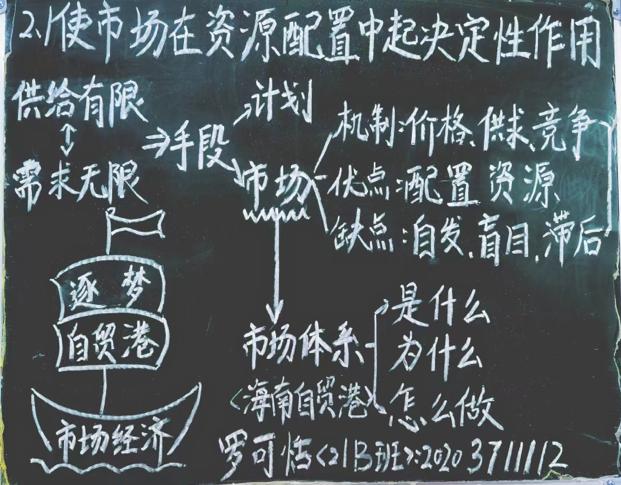 2.1使市场在资源配置中起决定性作用
供给有限
需求无限
手段
计划
市场
机制:价格、供求、竞争
优点:配置资源
缺点:自发、盲目、滞后
逐梦
自贸港
市场经济
市场体系
<海南自贸港>
是什么
为什么
怎么做
罗可恬<21B班>:20203711112